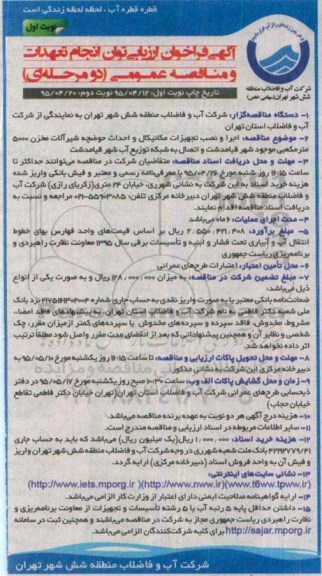 قطره قطره آب ، لحظه لحظه زندگی است
نوبت اول
آگهی فراخوان ارزیابی توان انجام تعهدات
و مناقصه عمومی (دو مرحله‌ای)
تاریخ چاپ نوبت اول: ۹۵/۰۴/۱۲ نوبت دوم: ۹۵/۰۴/۲۰
شرکت آب و فاضلاب منطقه
شش شهر تهران (سهامی خاص)
۱- دستگاه مناقصه‌گزار: شرکت آب و فاضلاب منطقه شش شهر تهران به نمایندگی از شرکت
آب و فاضلاب استان تهران
۲- موضوع مناقصه: اجرا و نصب تجهیزات مکانیکال و احداث حوضچه شیرآلات مخزن ۵۰۰۰
مترمکعبی موجود شهر قیامدشت و اتصال به شبکه توزیع آب شهر قیامدشت
۳- مهلت و محل دریافت اسناد مناقصه: متقاضیان شرکت در مناقصه می‌توانند حداکثر تا
ساعت ۱۶:۱۵ روز شنبه مورخ ۹۵/۰۴/۲۶ با معرفی‌نامه رسمی و معتبر و فیش بانکی واریز شده
هزینه خرید اسناد به این شرکت به نشانی شهرری، خیابان ۲۴ متری (زکریای رازی) شرکت آب
و فاضلاب منطقه شش شهر تهران دبیرخانه مرکزی تلفن: ۵۵۹۰۳۰۸۵-۰۲۱ مراجعه و نسبت به
دریافت اسناد مناقصه اقدام نمایند.
۴- مدت اجرای عملیات: ۶ ماه می‌باشد
۵- مبلغ برآورد: ۲/۵۵۰/۴۲۱/۴۰۸ ریال بر اساس قیمت‌های واحد فهارس بهای خطوط
انتقال آب و آبیاری تحت فشار و ابنیه و تأسیسات برقی سال ۱۳۹۵ معاونت نظارت راهبردی و
برنامه‌ریزی ریاست جمهوری
۶- محل تأمین اعتبار: اعتبارات طرح‌های عمرانی
۷- مبلغ تضمین شرکت در مناقصه: به میزان ۱۲۸/۰۰۰/۰۰۰ ریال و به صورت یکی از انواع
ذیل می‌باشد:
ضمانت‌نامه بانکی معتبر یا به صورت واریز نقدی به حساب جاری شماره ۲۱۷۵۶۱۳۰۲۰۰۴ نزد بانک
ملی شعبه دکتر فاطمی به نام شرکت آب و فاضلاب استان تهران. به پیشنهادهای فاقد امضاء،
مشروط، مخدوش، فاقد سپرده و سپرده‌های مخدوش یا سپرده‌های کمتر از میزان مقرر، چک
شخصی و نظایر آن و همچنین پیشنهاداتی که بعد از انقضای مدت مقرر واصل شود مطلقا ترتیب
اثر داده نخواهد شد.
۸- مهلت و محل تحویل پاکات ارزیابی و مناقصه: تا ساعت ۱۶:۱۵ روز یکشنبه مورخ ۹۵/۰۵/۱۰ به
دبیرخانه مرکزی این شرکت به نشانی مذکور.
۹- زمان و محل گشایش پاکات الف و ب: ساعت ۱۰:۳۰ صبح روز یکشنبه مورخ ۹۵/۰۵/۱۷ در دفتر
ذیحسابی طرح‌های عمرانی شرکت آب و فاضلاب استان تهران (تهران خیابان دکتر فاطمی تقاطع
خیابان حجاب)
۱۰- هزینه درج آگهی هر دو نوبت به عهده برنده مناقصه می‌باشد.
۱۱- سایر اطلاعات مربوطه در اسناد ارزیابی و مناقصه مندرج است.
۱۲- هزینه خرید اسناد: ۱/۰۰۰/۰۰۰ ریال (یک میلیون ریال) می‌باشد که باید به حساب جاری
بانک ملت شعبه شهرری در وجه شرکت آب و فاضلاب منطقه شش شهر تهران واریز
و فیش آن به واحد فروش اسناد (دبیرخانه مرکزی) ارایه گردد.
۱۳- نشانی سایت‌های اینترنتی:
(http://www.iets.mporg.ir)(http://www.nww.ir)(www.t6ww.tpww.ir)
۱۴- ارایه گواهینامه صلاحیت ایمنی دارای اعتبار از وزارت کار الزامی می‌باشد.
۱۵- داشتن حداقل پایه ۵ رتبه آب یا ۵ رشته تأسیسات و تجهیزات از معاونت برنامه‌ریزی و
نظارت راهبردی ریاست جمهوری مجاز به شرکت در مناقصه می‌باشند و همچنین ثبت در سامانه
http://sajar.mporg.ir برای کلیه شرکت‌کنندگان الزامی می‌باشد.
شرکت آب و فاضلاب منطقه شش شهر تهران